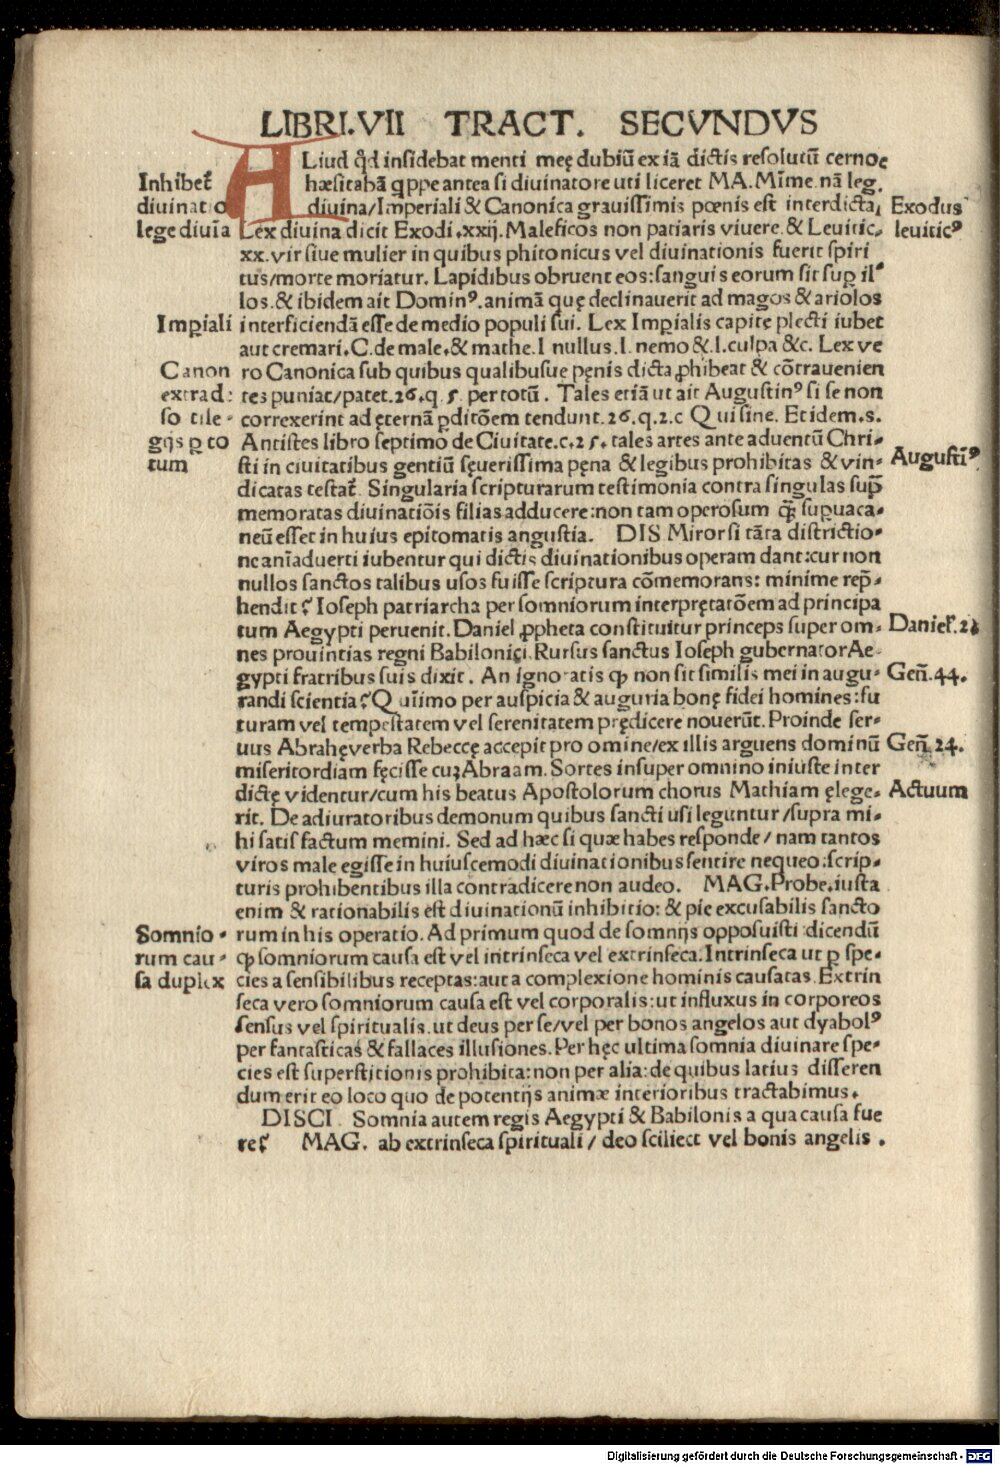 LIBRI.VII TRACT. SECVNDVS
ALiud qd̄ insidebat menti meę dubiū ex iā dictis resolutū cerno
Inhibet᷑
hæsitabā q̱ppe antea si diuinatore uti liceret MA. Mīme nā leg.
diuinatio
diuina/Imperiali & Canonica grauissimis pœnis est interdicta,
Exodus
lege diuīa
Lex diuina dicit Exodi .xxij. Maleficos non patiaris viuere. & Leuitic.
leuiticꝰ
xx. vir siue mulier in quibus phitonicus vel diuinationis fuerit spiri
tus/morte moriatur. Lapidibus obruent eos: sanguis eorum sit suꝑ il-
los. & ibidem ait Dominꝰ. animā quę declinauerit ad magos & ariolos
Imꝑiali
interficiendā esse de medio populi sui. Lex Imꝑialis capite plecti iubet
aut cremari. C. de male. & mathe. l nullus. l. nemo & .l. culpa &c. Lex ve
Canon
ro Canonica sub quibus qualibusue pęnis dicta ꝓhibeat & cōtrauenien
extrad:
tes puniat/patet. 26. q. 5. per totū. Tales etiā ut ait Augustinꝰ si se non
so tile-
correxerint ad ęternā ꝑditōem tendunt. 26. q. 2. c Qui sine. Et idem. s.
gijs ꝑ to
Antistes libro septimo de Ciuitate. c. 25. tales artes ante aduentū Chri-
tum
sti in ciuitatibus gentiū sęuerissima pęna & legibus prohibitas & vin-
Augustīꝰ
dicatas testat᷑. Singularia scripturarum testimonia contra singulas sup̄
memoratas diuinatiōis filias adducere: non tam operosum q̄ꝫ suꝑuaca-
neū esset in huius epitomatis angustia. DIS Miror si tāta districtio-
ne anīaduerti iubentur qui dictis diuinationibus operam dant: cur non
nullos sanctos talibus usos fuisse scriptura cōmemorans: minime rep̄-
hendit? Ioseph patriarcha per somniorum interpretatōem ad principa
tum Aegypti peruenit. Daniel ꝓpheta constituitur princeps super om-
Daniel. 2.
nes prouintias regni Babilonici. Rursus sanctus Ioseph gubernator Ae-
gypti fratribus suis dixit. An ignoratis ꝙ non sit similis mei in augu-
Geñ. 44.
randi scientia? Quīimo per auspicia & auguria bonę fidei homines: fu
turam vel tempestatem vel serenitatem prędicere nouerūt. Proinde ser-
uus Abrahę verba Rebeccę accepit pro omine/ex illis arguens dominū
Geñ. 24.
misericordiam fęcisse cuꝫ Abraam. Sortes insuper omnino iniuste inter
dictę videntur/cum his beatus Apostolorum chorus Mathiam ęlege-
Actuum
rit. De adiuratoribus demonum quibus sancti usi leguntur/supra mi-
hi satis factum memini. Sed ad hæc si quæ habes responde/nam tantos
viros male egisse in huiuscemodi diuinationibus sentire nequeo: scrip-
turis prohibentibus illa contradicere non audeo. MAG. Probe. iusta
enim & rationabilis est diuinationū inhibitio: & pie excusabilis sancto
Somnio-
rum in his operatio. Ad primum quod de somnijs opposuisti dicendū
rum cau-
ꝙ somniorum causa est vel intrinseca vel extrinseca: Intrinseca ut ꝑ spe-
sa duplex
cies a sensibilibus receptas: aut a complexione hominis causatas. Extrin
seca vero somniorum causa est vel corporalis: ut influxus in corporeos
sensus vel spiritualis. ut deus per se/vel per bonos angelos aut dyabolꝰ
per fantasticas & fallaces illusiones. Per hęc ultima somnia diuinare spe-
cies est superstitionis prohibita: non per alia: de quibus latius disseren
dum erit eo loco quo de potentijs animæ interioribus tractabimus.
DISCI. Somnia autem regis Aegypti & Babilonis a qua causa fue
re? MAG. ab extrinseca spirituali / deo scilicet vel bonis angelis .
Digitalisierung gefördert durch die Deutsche Forschungsgemeinschaft - DFG